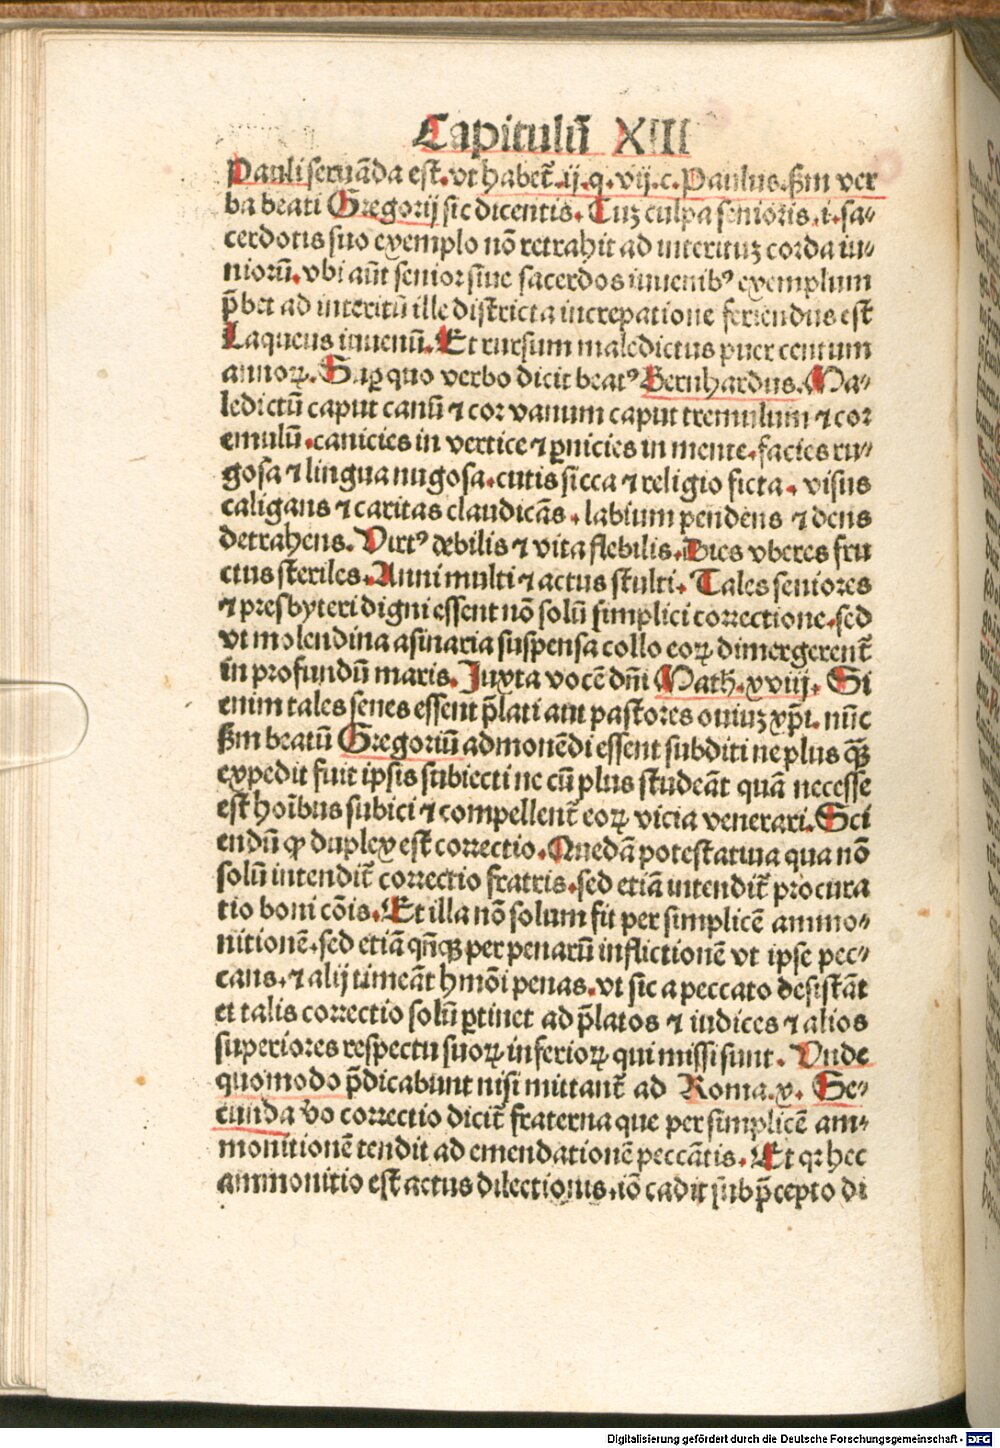 Capitulū XIII
Pauli seruāda est. vt habet̄. ij. q. vij. c. Paulus. ẜm ver
ba beati Gregorij sic dicentis. Cuꝫ culpa senioris .i. sa⸗
cerdotis suo exemplo nō retrahit ad interituꝫ corda iu⸗
niorū. vbi aūt senior siue sacerdos iuuenibꝰ exemplum
p̄bet ad interitū ille districta increpatione feriendus est
Laqueus iuuenū. Et rursum maledictus puer centum
annoꝝ. Suꝑ quo verbo dicit beatꝰ Bernhardus. Ma⸗
ledictū caput canū ⁊ cor vanum caput tremulum ⁊ cor
emulū. canicies in vertice ⁊ ꝑnicies in mente. facies ru⸗
gosa ⁊ lingua nugosa. cutis sicca ⁊ religio ficta. visus
caligans ⁊ caritas claudicās. labium pendens ⁊ dens
detrahens. Virtꝰ debilis ⁊ vita flebilis. Dies vberes fru
ctus steriles. Anni multi ⁊ actus stulti. Tales seniores
⁊ presbyteri digni essent nō solū simplici correctione. sed
vt molendina asinaria suspensa collo eoꝝ dimergerent̄
in profundū maris. Iuxta vocē dn̄i Math. xviij. Si
enim tales senes essent p̄lati aut pastores ouiuꝫ xp̄i. nūc
ẜm beatū Gregoriū admonēdi essent subditi ne plus qꝫ̄
expedit fuit ipsis subiecti ne cū plus studeāt quā necesse
est hoībus subici ⁊ compellent̄ eoꝝ vicia venerari. Sci
endū ꝙ duplex est correctio. Quedā potestatiua qua nō
solū intendit̄ correctio fratris. sed etiā intendit̄ procura
tio boni cōis. Et illa nō solum fit per simplicē ammo⸗
nitionē. sed etiā qn̄qꝫ per penarū inflictionē vt ipse pec⸗
cans. ⁊ alij timeāt hmōi penas. vt sic a peccato desistāt
et talis correctio solū ꝑtinet ad p̄latos ⁊ iudices ⁊ alios
superiores respectu suoꝝ inferioꝝ qui missi sunt. Vnde
quomodo p̄dicabunt nisi mittant̄ ad Roma. x. Se⸗
cunda v̄o correctio dicit̄ fraterna que per simplicē am⸗
monitionē tendit ad emendationē peccātis. Et qꝛ hec
ammonitio est actus dilectionis. iō cadit sub p̄cepto di
Digitalisierung gefördert durch die Deutsche Forschungsgemeinschaft - DFG